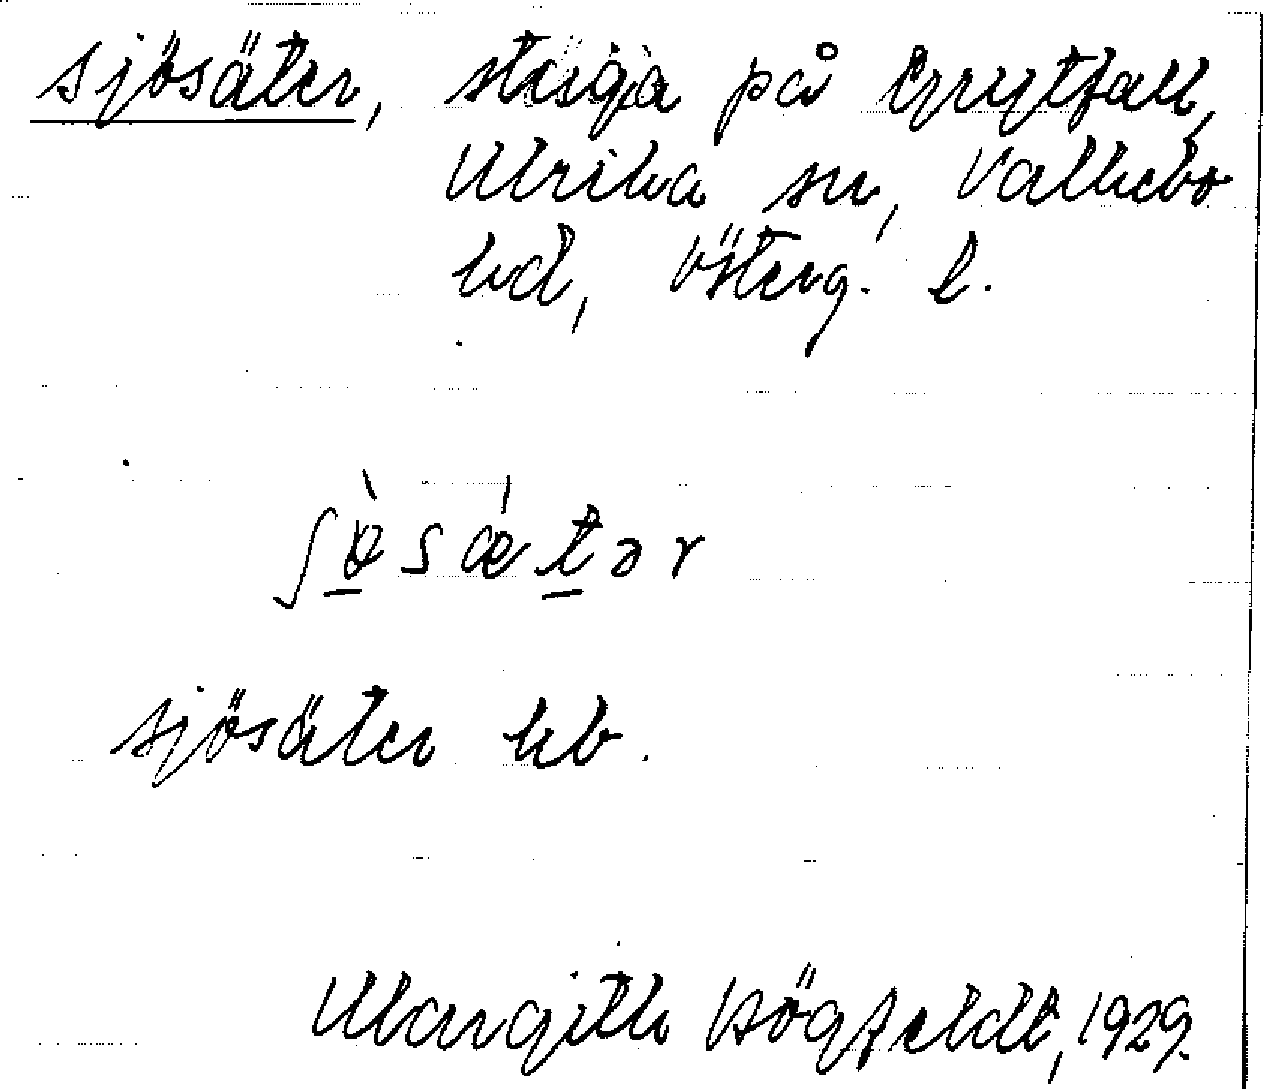 sjösäter, stuga på Grytfall,
Ulrika sn, Valkebo
hd, Österg. l.
ʃø̀sǽtər
sjösäter kb.
Margith Högfeldt, 1929.